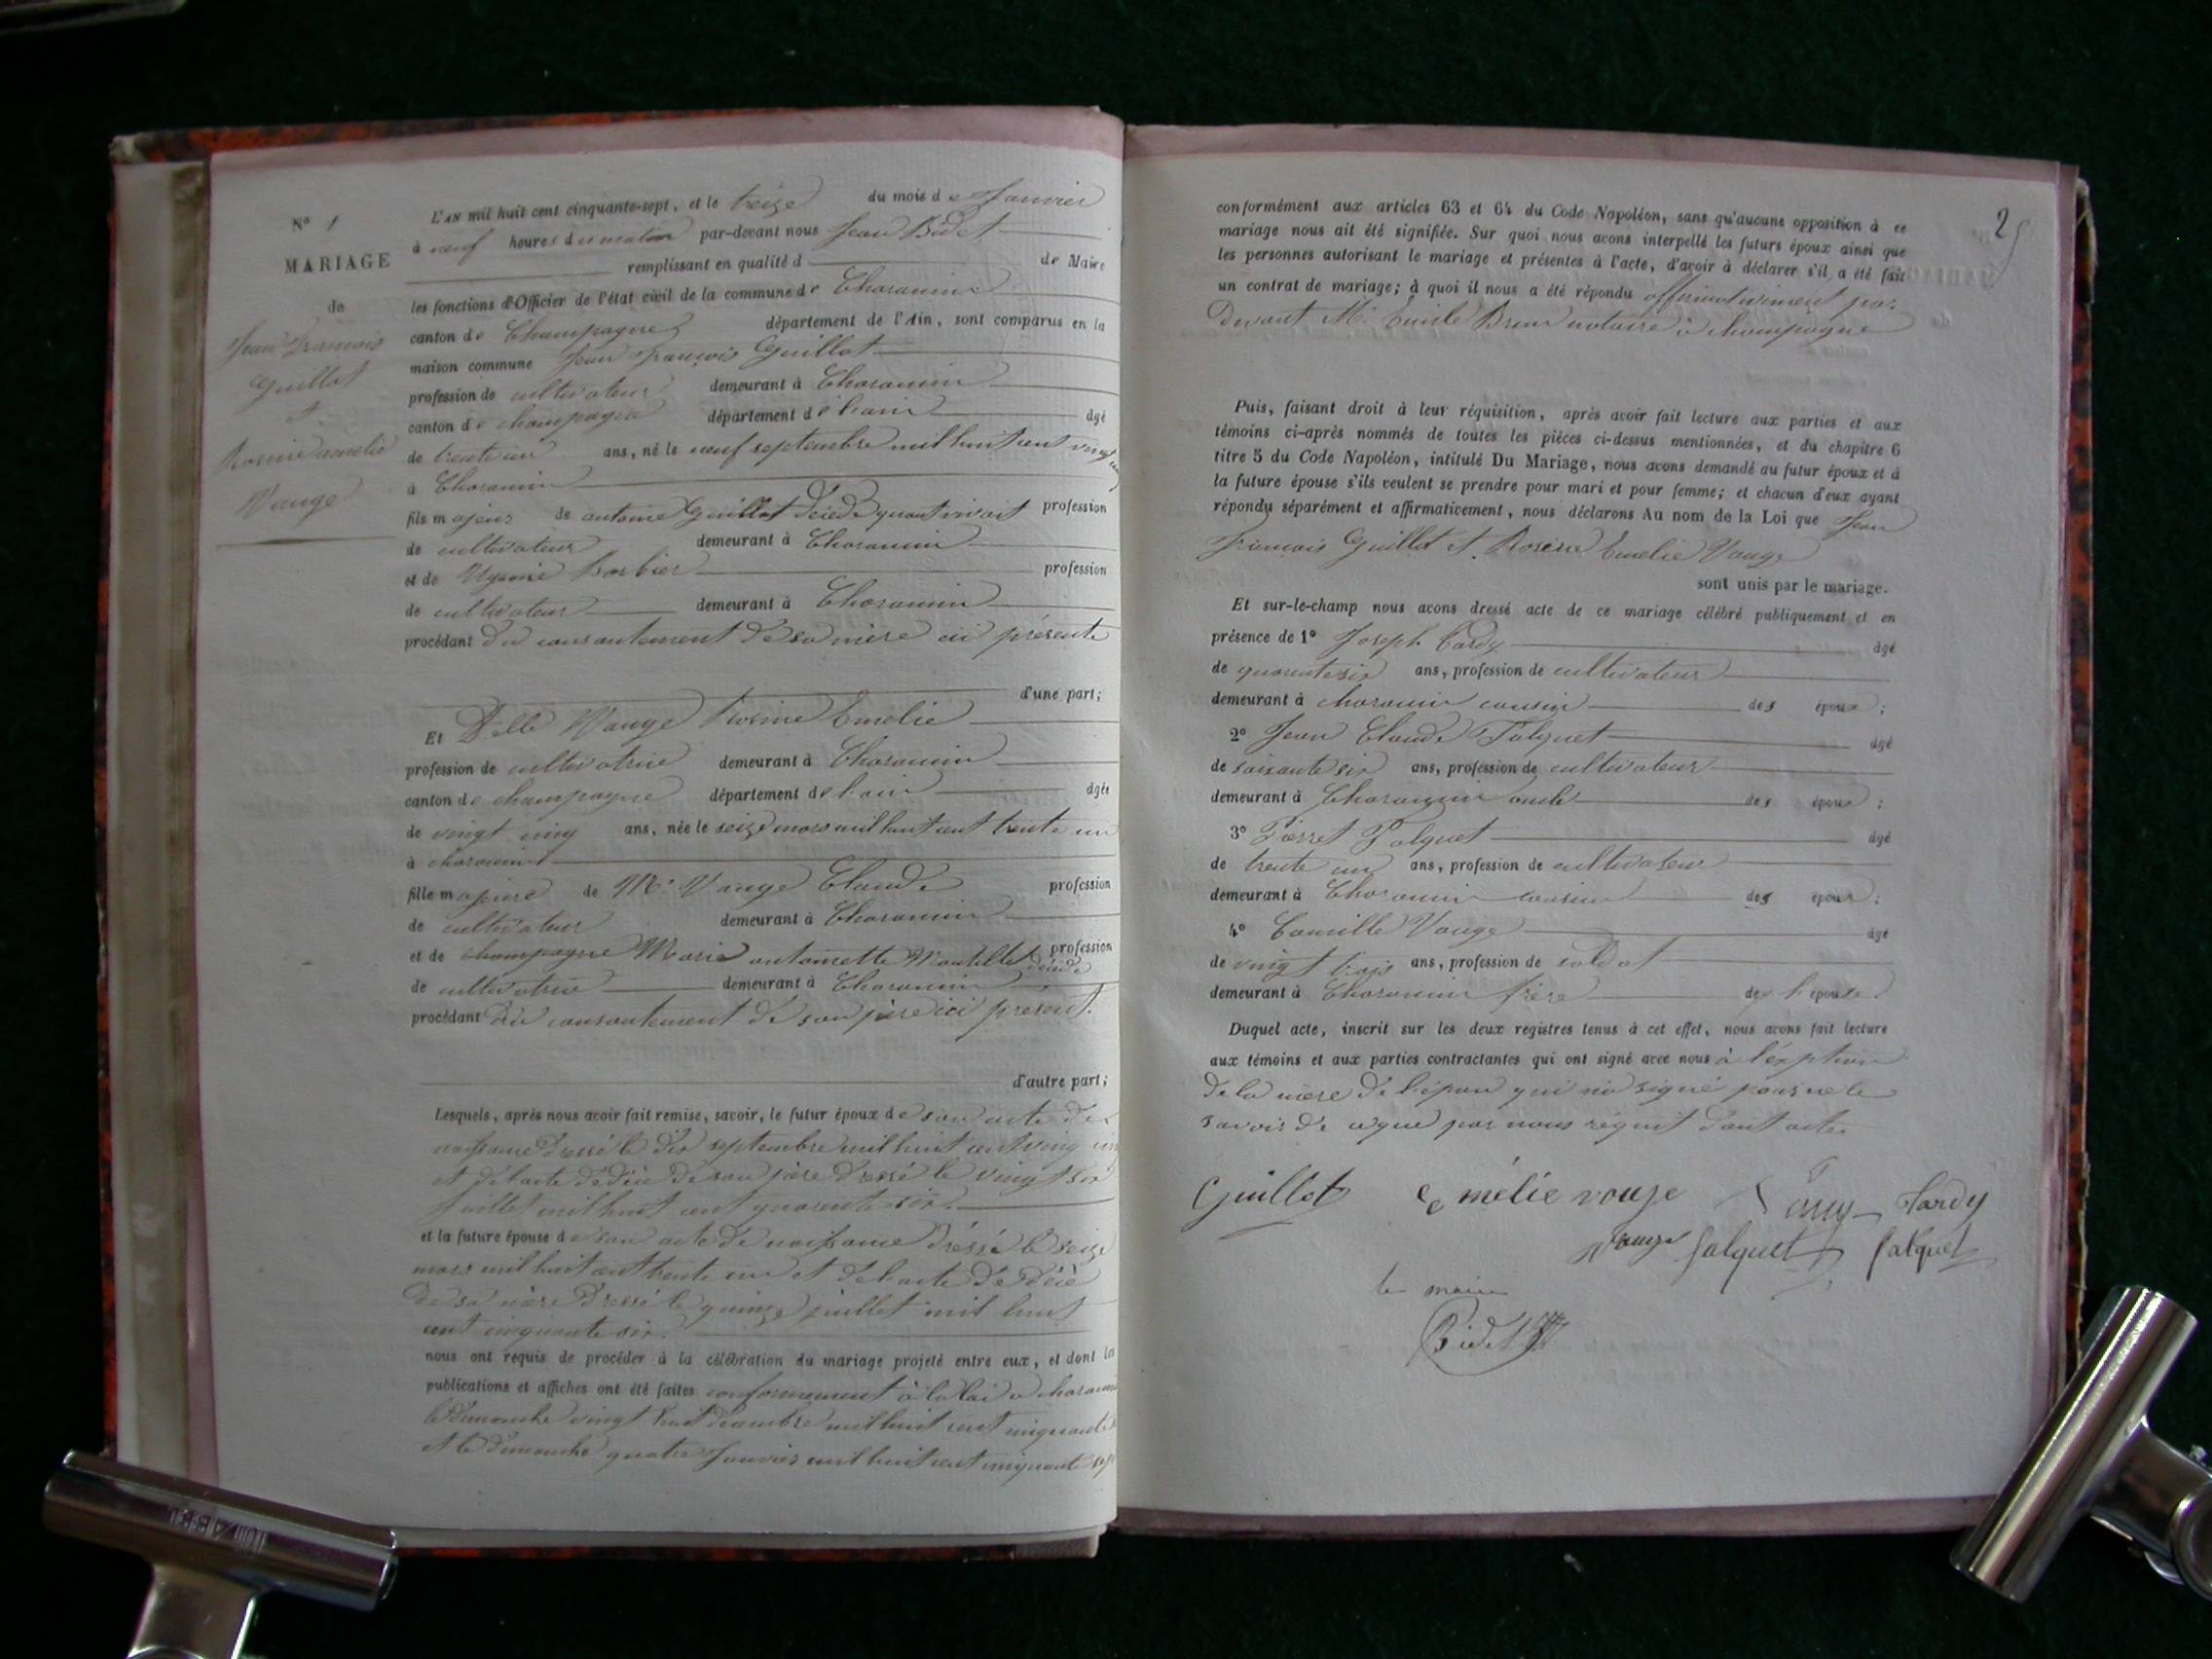 N° 1
MARIAGE
de
Jean François
Guillot
et
Rosine amelie
Vauge
L'AN mil huit cent cinquante-sept, et le treize du mois de Janvier
à neuf heures du matin par-devant nous Jean Bidet
remplissant en qualité d de Maire
les fonctions d'Officier de l'état civil de la commune de Charancin
canton de Champagne département de l'Ain, sont comparus en la
maison commune Jean François Guillot
profession de cultivateur demeurant à Charancin
canton de champagne département de l'ain âgé
de trente un ans, né le neuf septembre mil huit cent vingt cinq
à Charancin
fils majeur de antoine Guillot décédé quant vivait profession
de cultivateur demeurant à Charancin
et de Barbier profession
de cultivateur demeurant à Charancin
procédant du consantement de sa mère ici présente
d'une part;
Et Delle Vauge Rosine Emelie
profession de cultivatrice demeurant à Charancin
canton de champagne département de l'ain âgée
de vingt cinq ans, née le seize mars mil huit cent trente un
à charancin
fille majeure de Mr Vauge Claude profession
de cultivateur demeurant à Charancin
et de champagne Marie antoinette décédé profession
de cultivatrice demeurant à Charancin
procédant du consantement de son père ici présent.
d'autre part;
Lesquels, après nous avoir fait remise, savoir, le futur époux de son acte de
naissance dressé le dix septembre mil huit cent vingt cinq
et de l'acte de décè de son père dressé le vingt six
juillet mil huit cent quarente six.
et la future épouse de son acte de naissance dréssé le seize
mars mil huit cent trente un et de l'acte de décè
de sa mère dressé le quinze juillet mil huit
cent cinquante six.
nous ont requis de procéder à la célébration du mariage projeté entre eux, et dont les
publications et affiches ont été faites conformément à la loi à charancin
le dimanche vingt huit décembre mil huit cent cinquante
et le dimanche quatre Janvier mil huit cent cinquante sept
2
conformément aux articles 63 et 64 du Code Napoléon, sans qu'aucune opposition à ce
mariage nous ait été signifiée. Sur quoi nous avons interpellé les futurs époux ainsi que
les personnes autorisant le mariage et présentes à l'acte, d'avoir à déclarer s'il a été fait
un contrat de mariage; à quoi il nous a été répondu affirmativement par
Devant Mr Brun notaire à champagne
Puis, faisant droit à leur réquisition, après avoir fait lecture aux parties et aux
témoins ci-après nommés de toutes les pièces ci-dessus mentionnées, et du chapitre 6
titre 5 du Code Napoléon, intitulé Du Mariage, nous avons demandé au futur époux et à
la future épouse s'ils veulent se prendre pour mari et pour femme; et chacun d'eux ayant
répondu séparément et affirmativement, nous déclarons Au nom de la Loi que Jean
François Guillot et Rosine Emelie Vauge
sont unis par le mariage.
Et sur-le-champ nous avons dressé acte de ce mariage célébré publiquement et en
présence de 1° Joseph Tardy âgé
de quarente six ans, profession de cultivateur
demeurant à charancin cousin des époux;
2° Jean Claude Falquet âgé
de soixante six ans, profession de cultivateur
demeurant à Charancin oncle des époux;
3° Falquet âgé
de trente un ans, profession de cultivateur
demeurant à Charancin cousin des époux;
4° Camille Vauge âgé
de vingt trois ans, profession de soldat
demeurant à Charancin frère de l'épouse
Duquel acte, inscrit sur les deux registres tenus à cet effet, nous avons fait lecture
aux témoins et aux parties contractantes qui ont signé avec nous à l'exption
de la mère de l'époux qui n'a signé pour ne le
savoir de ceque par nous réquit dont acte
Guillot Emélie vouje Tardy
Vauge falquet falquet
le maire
Bidet